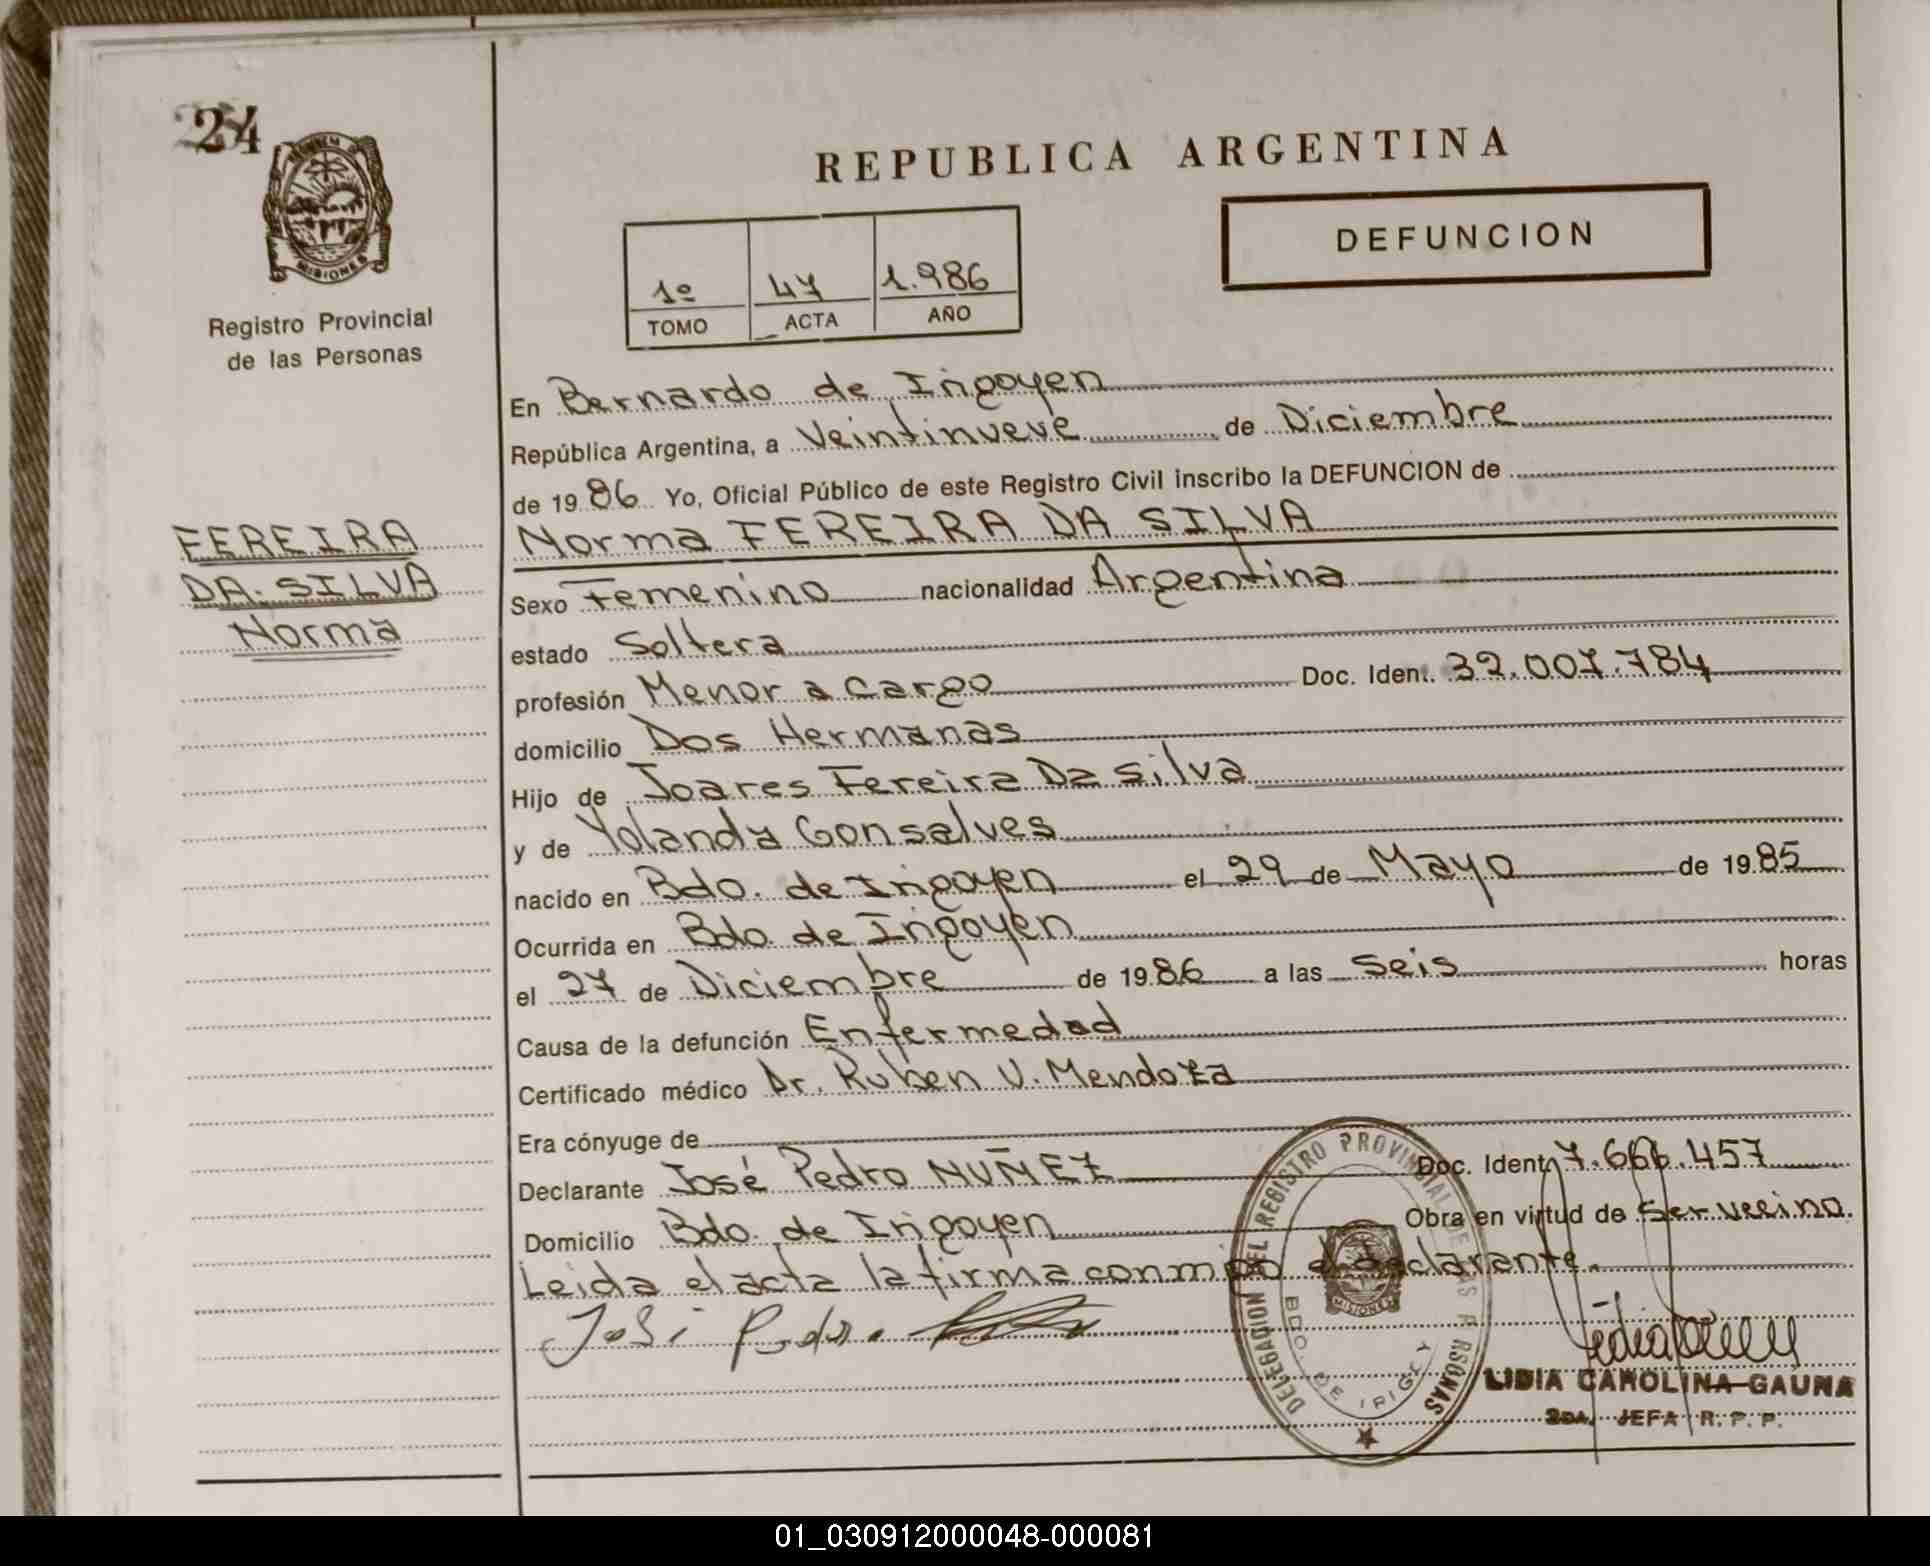 24
REPUBLICA ARGENTINA
DEFUNCION
MISIONES
Registro Provincial
de las Personas
1º 47 1.986
TOMO ACTA AÑO
En Bernardo de Irigoyen
República Argentina, a Veintinueve de Diciembre
de 1986 Yo, Oficial Público de este Registro Civil inscribo la DEFUNCION de
Norma FEREIRA DA SILVA
FEREIRA
DA SILVA
Norma
Sexo Femenino nacionalidad Argentina
estado Soltera
profesión Menor a cargo Doc. Ident. 32.007.784
domicilio Dos Hermanas
Hijo de Joares Fereira Da Silva
y de Yolanda Gonsalves
nacido en Bdo. de Irigoyen el 29 de Mayo de 1985
Ocurrida en Bdo. de Irigoyen
el 27 de Diciembre de 1986 a las Seis horas
Causa de la defunción Enfermedad
Certificado médico Dr. Ruben V. Mendoza
Era cónyuge de
Declarante José Pedro NUÑEZ Doc. Ident. 7.666.457
Domicilio Bdo. de Irigoyen Obra en virtud de Ser vecino.
Leida el acta la firma conmigo el declarante.
José Pedro
DELEGACION DEL REGISTRO PROVINCIAL DE LAS PERSONAS
BDO. DE IRIGOY
MISIONES
LIDIA CAROLINA GAUNA
2DA. JEFA R. P. P.
01_030912000048-000081